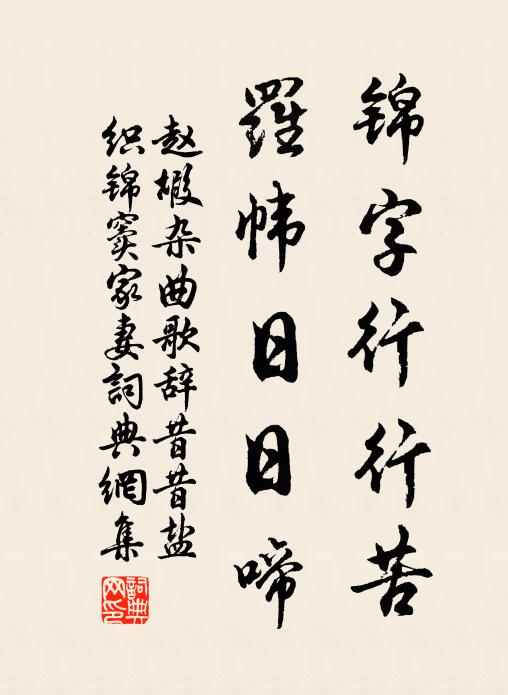 锦字行行苦
羅帏日日啼
赵嘏杂曲歌辞昔昔盐
织锦窦家妻詞典網集
詞典网印